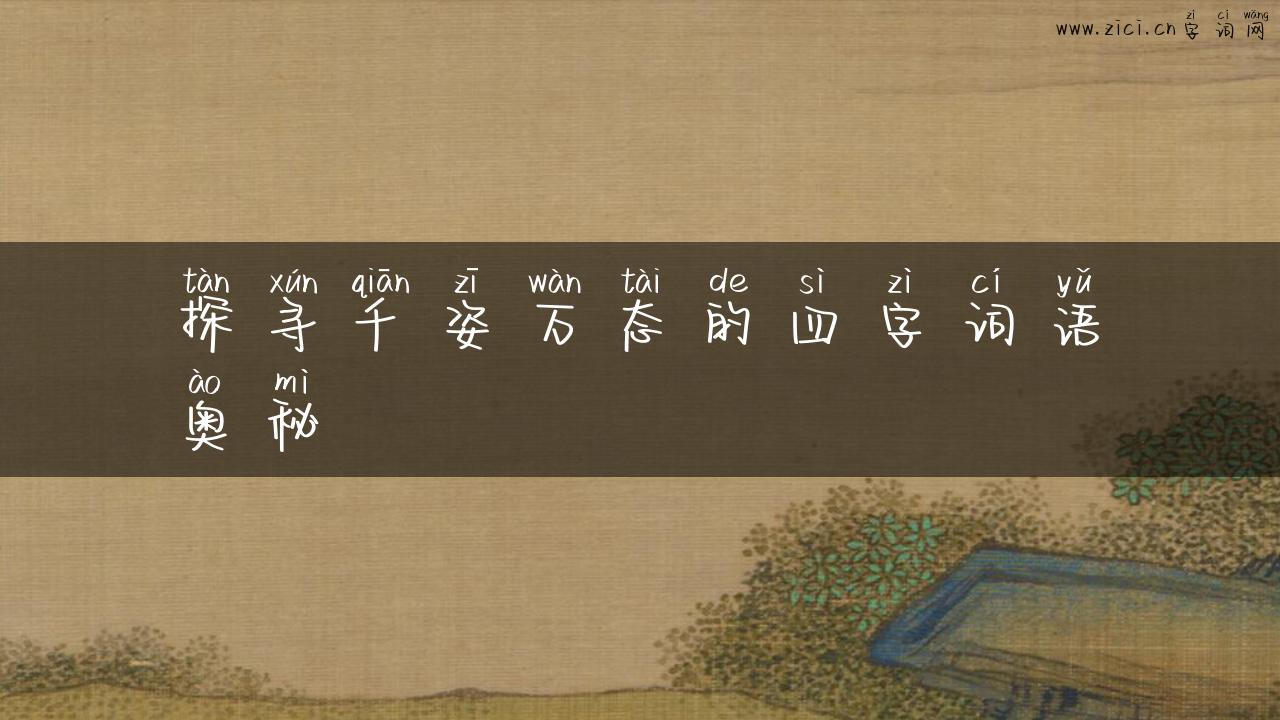 zì cí wǎng
www.zici.cn 字词网
tàn xún qiān zī wàn tài de sì zì cí yǔ
探寻千姿万态的四字词语
ào mì
奥秘